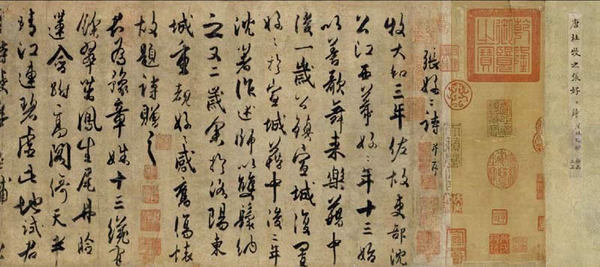 唐杜牧之張好〻詩
乾隆御覽之寶
張好〻詩 并序
牧大和三年佐故吏部沈
公江西幕好〻年十三始
以善歌舞来樂籍中
後一歲公鎮宣城復置
好〻於宣城籍中後二年
沈著作述師以雙鬟納
之又二歲余於洛陽東
城重覩好〻感舊傷懷
故題詩贈之
君為豫章姝十三纔有
餘翠茁鳳生尾丹臉
蓮含跗高閣倚天半
晴江連碧虛此地試君